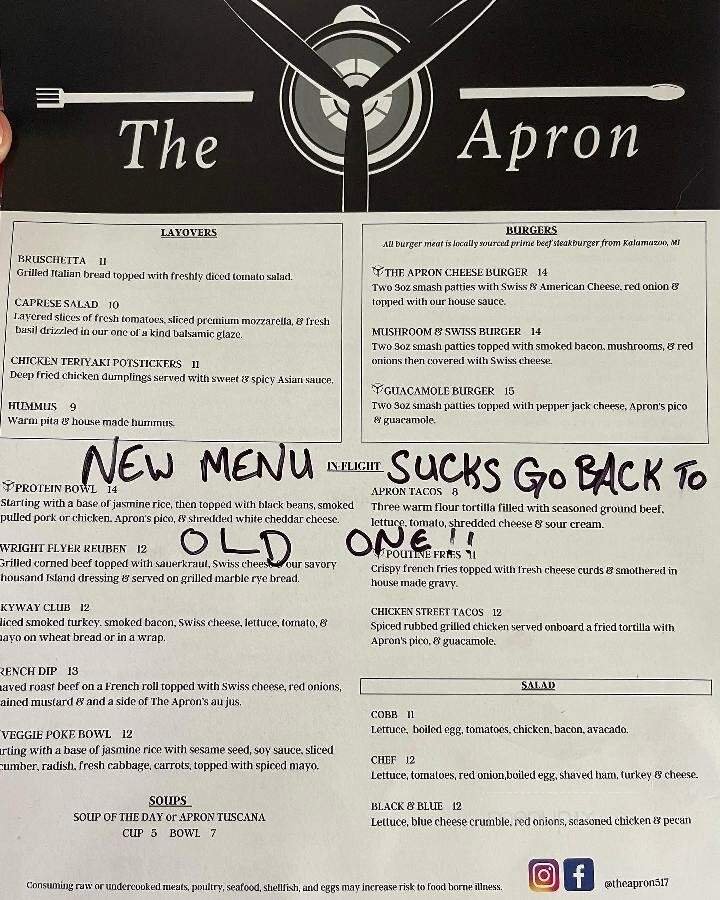 The Apron
LAYOVERS
BRUSCHETTA 11
Grilled Italian bread topped with freshly diced tomato salad.
CAPRESE SALAD 10
Layered slices of fresh tomatoes, sliced premium mozzarella, & fresh
basil drizzled in our one of a kind balsamic glaze.
CHICKEN TERIYAKI POTSTICKERS 11
Deep fried chicken dumplings served with sweet & spicy Asian sauce.
HUMMUS 9
Warm pita & house made hummus.
BURGERS
All burger meat is locally sourced prime beef steakburger from Kalamazoo, MI
THE APRON CHEESE BURGER 14
Two 3oz smash patties with Swiss & American Cheese, red onion &
topped with our house sauce.
MUSHROOM & SWISS BURGER 14
Two 3oz smash patties topped with smoked bacon, mushrooms, & red
onions then covered with Swiss cheese.
GUACAMOLE BURGER 15
Two 3oz smash patties topped with pepper jack cheese, Apron's pico
& guacamole.
NEW MENU SUCKS GO BACK TO
OLD ONE!!
IN-FLIGHT
PROTEIN BOWL 14
Starting with a base of jasmine rice, then topped with black beans, smoked
pulled pork or chicken, Apron's pico, & shredded white cheddar cheese.
WRIGHT FLYER REUBEN 12
Grilled corned beef topped with sauerkraut, Swiss cheese & our savory
housand Island dressing & served on grilled marble rye bread.
KYWAY CLUB 12
liced smoked turkey, smoked bacon, Swiss cheese, lettuce, tomato, &
ayo on wheat bread or in a wrap.
RENCH DIP 13
aved roast beef on a French roll topped with Swiss cheese, red onions,
ained mustard & and a side of The Apron's au jus.
VEGGIE POKE BOWL 12
rting with a base of jasmine rice with sesame seed, soy sauce, sliced
cumber, radish, fresh cabbage, carrots, topped with spiced mayo.
SOUPS
SOUP OF THE DAY or APRON TUSCANA
CUP 5 BOWL 7
APRON TACOS 8
Three warm flour tortilla filled with seasoned ground beef,
lettuce, tomato, shredded cheese & sour cream.
POUTINE FRIES 11
Crispy french fries topped with fresh cheese curds & smothered in
house made gravy.
CHICKEN STREET TACOS 12
Spiced rubbed grilled chicken served onboard a fried tortilla with
Apron's pico, & guacamole.
SALAD
COBB 11
Lettuce, boiled egg, tomatoes, chicken, bacon, avacado.
CHEF 12
Lettuce, tomatoes, red onion,boiled egg, shaved ham, turkey & cheese.
BLACK & BLUE 12
Lettuce, blue cheese crumble, red onions, seasoned chicken & pecan
Consuming raw or undercooked meats, poultry, seafood, shellfish, and eggs may increase risk to food borne illness.
@theapron517